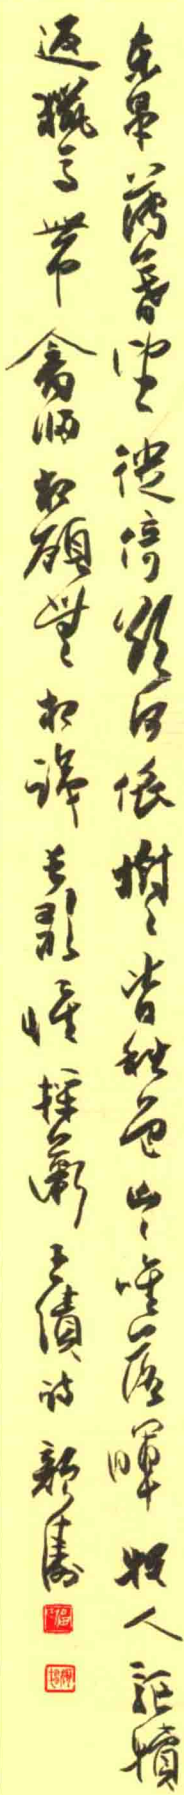 東皋薄暮望徙倚欲何依樹々皆秋色山々唯落暉牧人驅犢
返獵馬帶禽歸相顧無相識長歌懷採薇王績詩